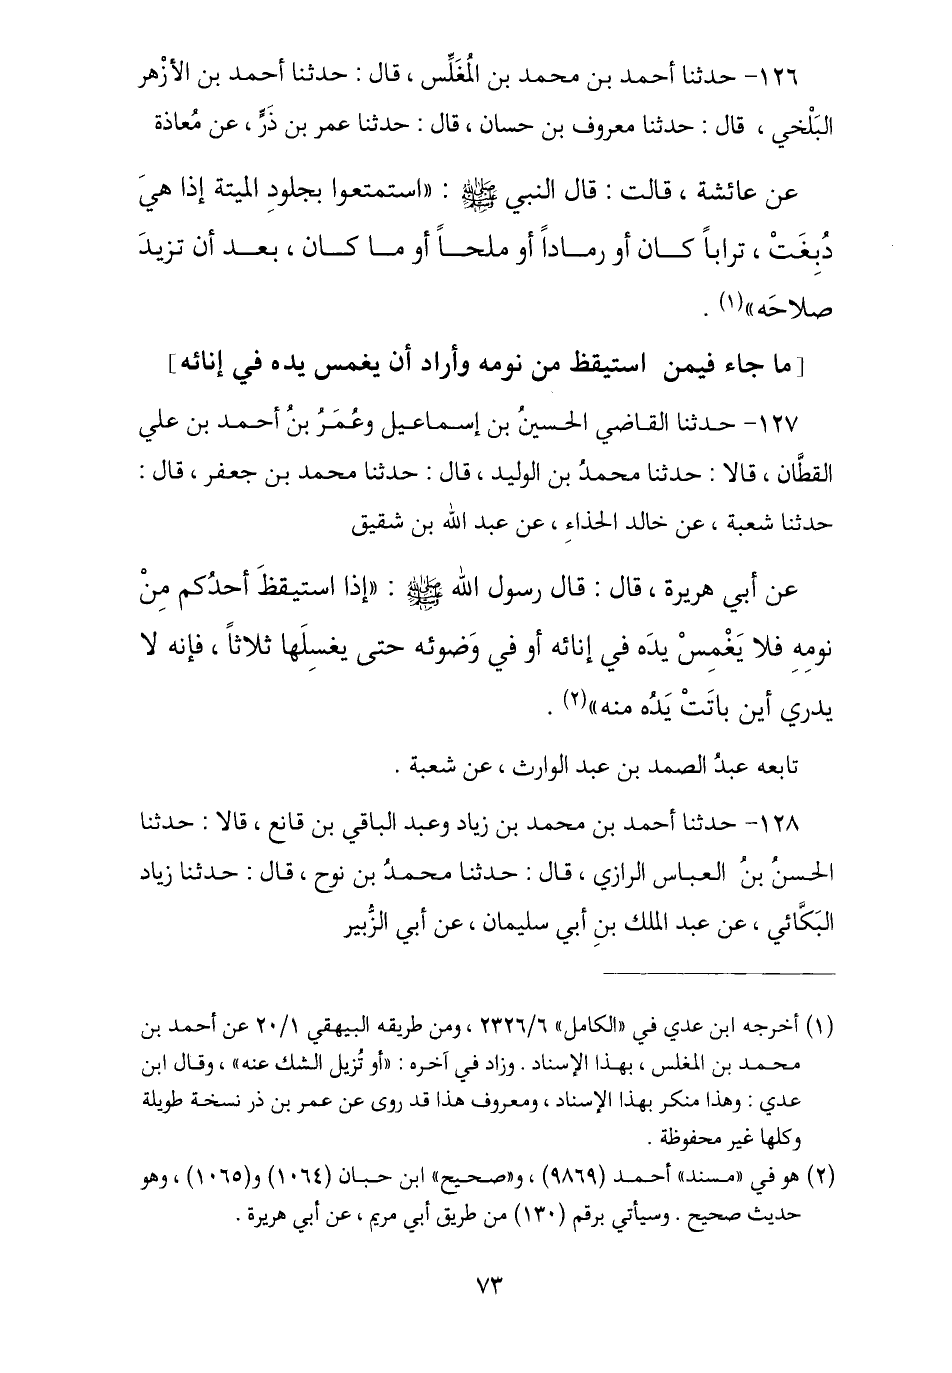 ١٢٦- حدثنا أحمد بن محمد بن المُغَلِّس ، قال : حدثنا أحمد بن الأزْهر
البَلْخي ، قال : حدثنا معروف بن حسان ، قال : حدثنا عمر بن ذَرٍّ ، عن مُعاذة
عن عائشة ، قالت : قال النبي ﷺ : «استمتعوا بجلودِ الميتة إذا هيَ
دُبِغَتْ ، تراباً كـان أو رمـاداً أو ملحـاً أو مـا كـان ، بعـد أن تزيدَ
صلاحَه»(١) .
[ما جاء فيمن استيقظ من نومه وأراد أن يغمس يده في إنائه]
١٢٧- حدثنا القاضي الحسينُ بن إسماعيل وعُمَرُ بنُ أحمد بن علي
القطَّان ، قالا : حدثنا محمدُ بن الوليد ، قال : حدثنا محمد بن جعفر ، قال :
حدثنا شعبة ، عن خالد الحذاءِ ، عن عبد الله بن شقيق
عن أبي هريرة ، قال : قال رسول الله ﷺ : «إذا استيقظَ أحدُكم مِنْ
نومِهِ فلا يَغْمِسْ يدَه في إنائه أو في وَضوئه حتى يغسِلَها ثلاثاً ، فإنه لا
يدري أين باتَتْ يَدُه منه»(٢) .
تابعه عبدُ الصمد بن عبد الوارث ، عن شعبة .
١٢٨- حدثنا أحمد بن محمد بن زياد وعبد الباقي بن قانع ، قالا : حدثنا
الحسنُ بنُ العباس الرازي ، قال : حدثنا محمدُ بن نوح ، قال : حدثنا زياد
البَكَّائي ، عن عبد الملك بنِ أبي سليمان ، عن أبي الزُّبير
(١) أخرجه ابن عدي في «الكامل» ٢٣٢٦/٦ ، ومن طريقه البيهقي ٢٠/١ عن أحمد بن
محمد بن المغلس ، بهذا الإسناد . وزاد في آخره : «أو تُزيل الشك عنه» ، وقال ابن
عدي : وهذا منكر بهذا الإسناد ، ومعروف هذا قد روى عن عمر بن ذر نسخة طويلة
وكلها غير محفوظة .
(٢) هو في «مسند» أحمد (٩٨٦٩) ، و«صحيح» ابن حبان (١٠٦٤) و(١٠٦٥) ، وهو
حديث صحيح . وسيأتي برقم (١٣٠) من طريق أبي مريم ، عن أبي هريرة .
٧٣